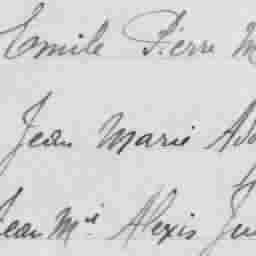 Emile Pierre M
Jean Marie Ad
Jean Mie Alexis